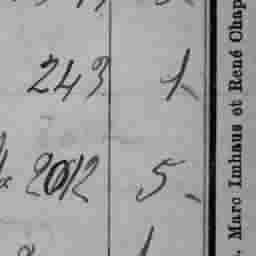 243 1.
2012 5.
. Marc Imhaus et René Chap